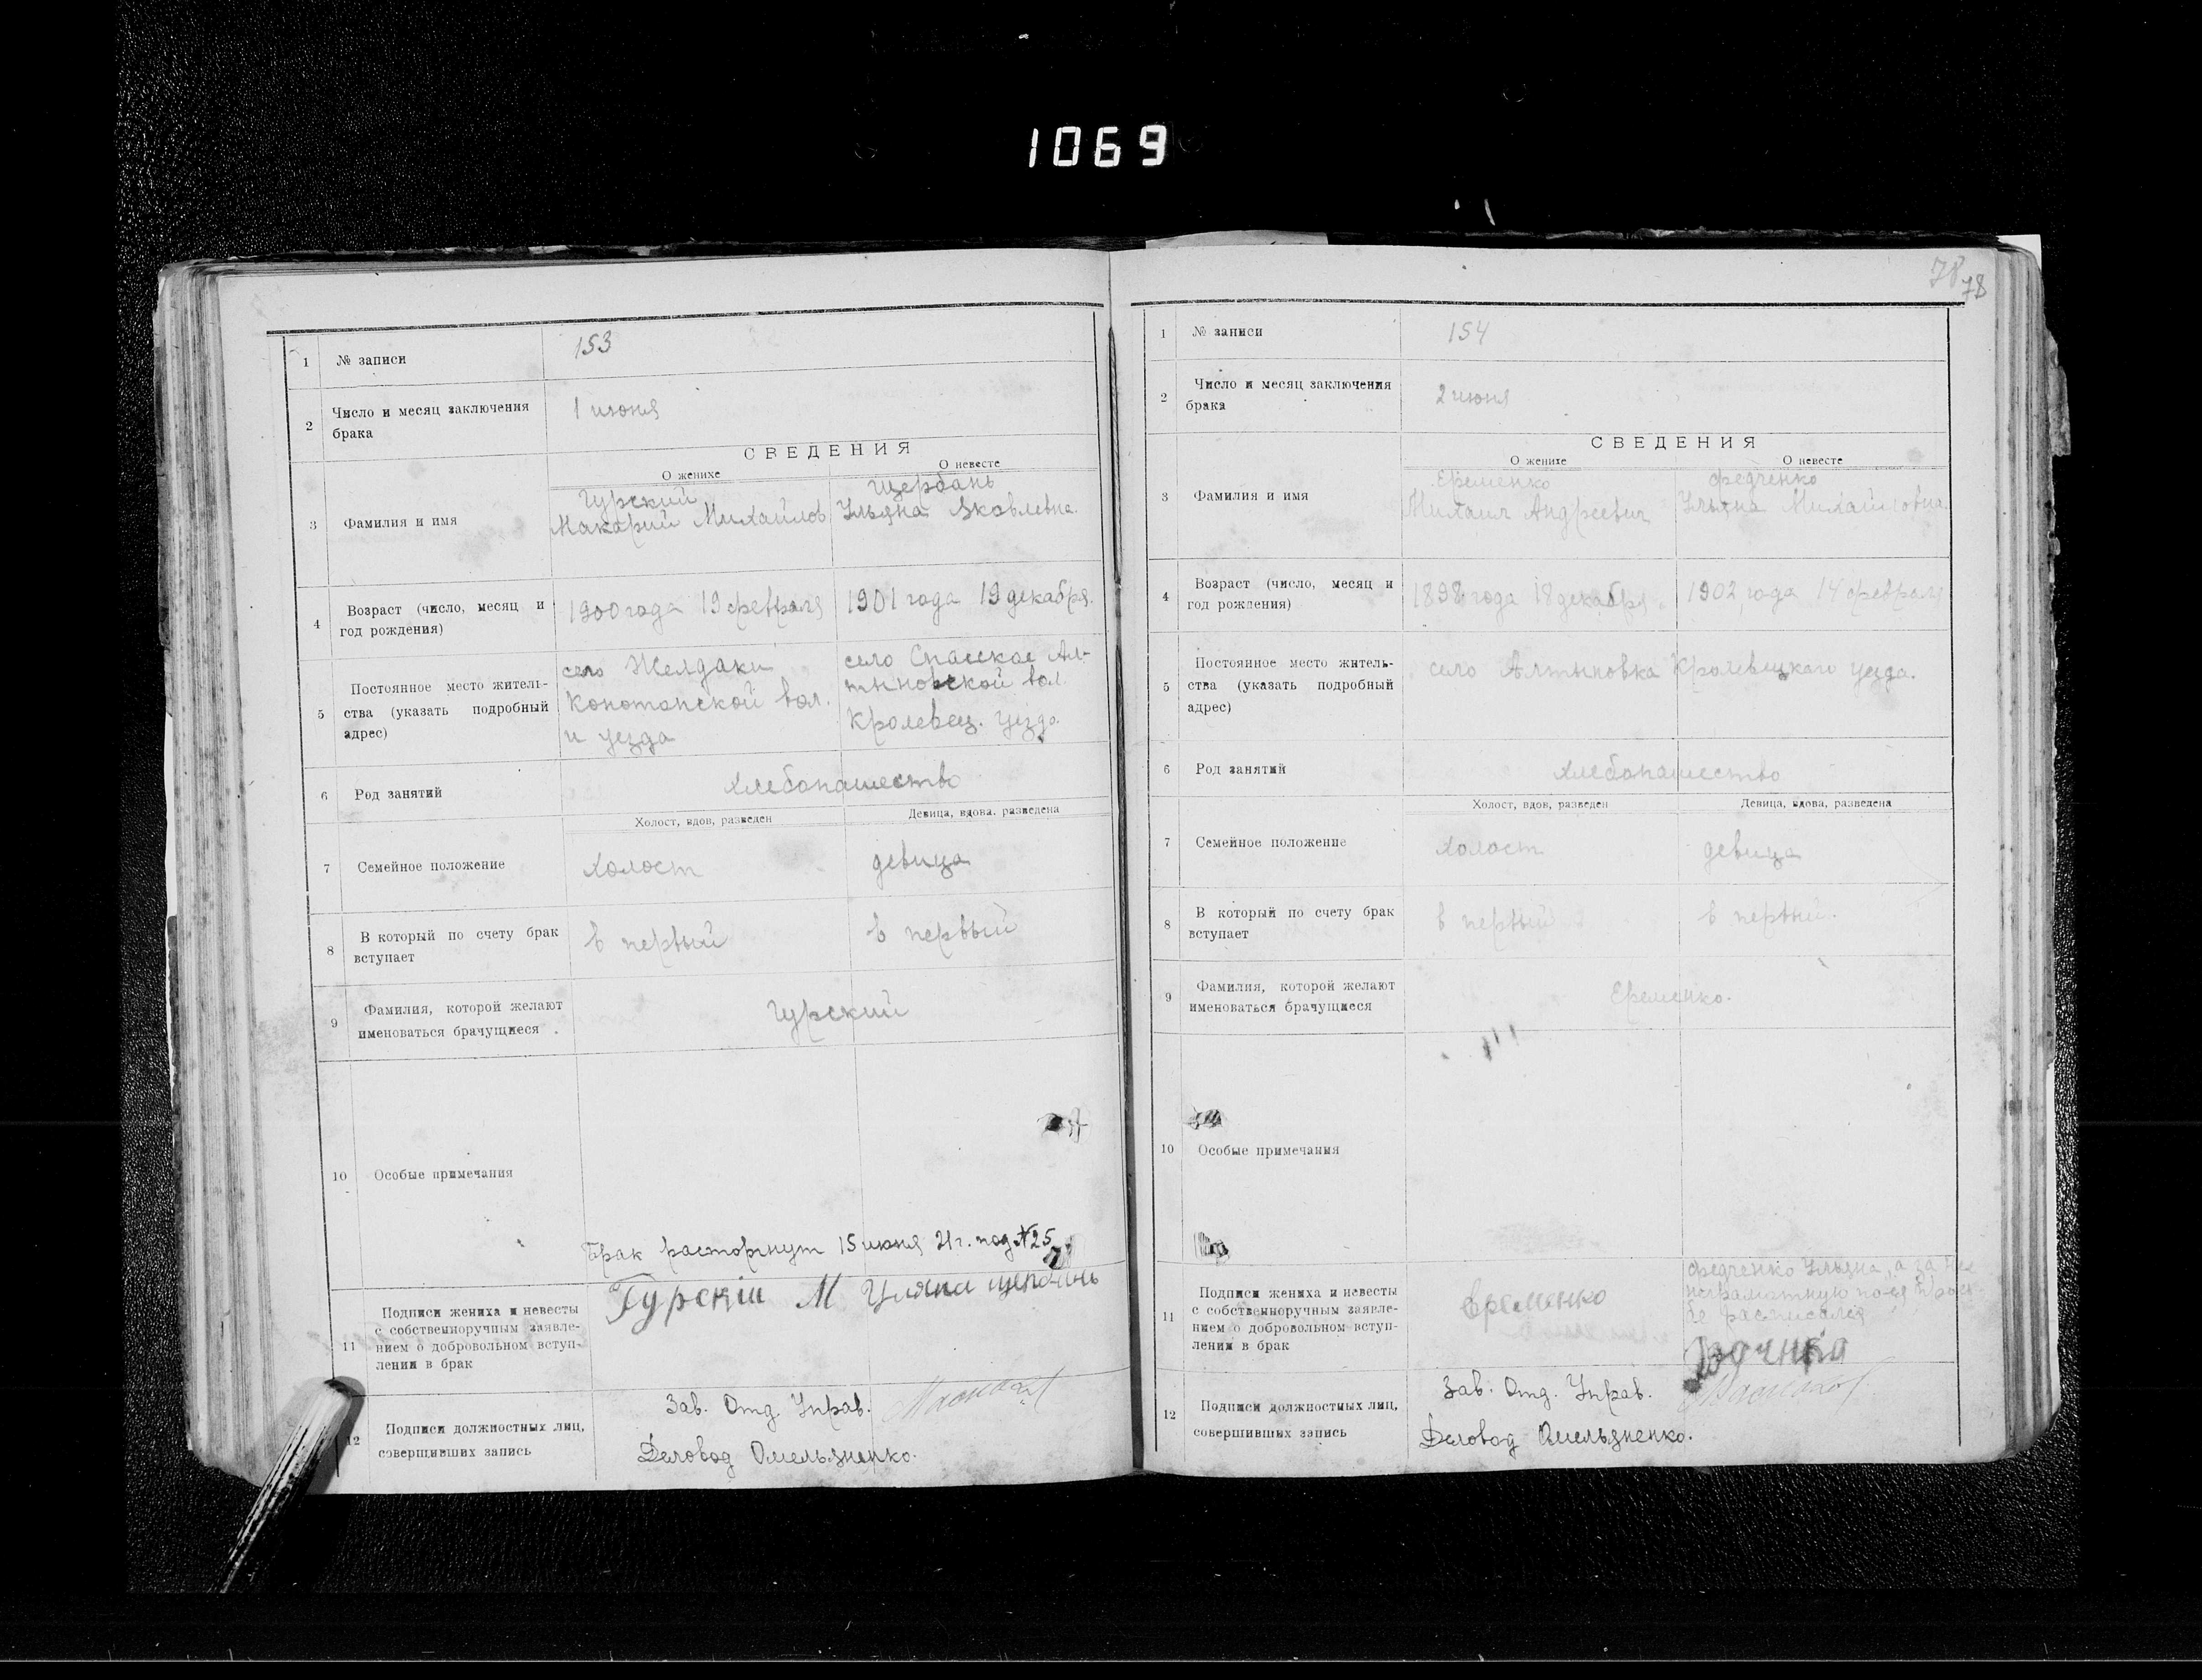 1069
1 № записи 153
2 Число и месяц заключения
брака
1 июня
СВЕДЕНИЯ
О женихе О невесте
3 Фамилия и имя
Гурский
Макарий Михайлов
Щербань
Ульяна Яковлевна.
4 Возраст (число, месяц и
год рождения)
1900 года 19 февраля
1901 года 19 декабря.
5 Постоянное место житель-
ства (указать подробный
адрес)
село Желдаки
Конотопской вол.
и уезда
село Спасское Ал-
тыновской вол.
Кролевец. уезда
6 Род занятий
Хлебопашество
Холост, вдов, разведен Девица, вдова, разведена
7 Семейное положение
холост девица
8 В который по счету брак
вступает
в первый в первый
9 Фамилия, которой желают
именоваться брачущиеся
Гурский
10 Особые примечания
Брак расторгнут 15 июня 21 г. под №25
11 Подписи жениха и невесты
с собственноручным заявле-
нием о добровольном вступ-
лении в брак
Гурскій М Уляна щербань
12 Подписи должностных лиц,
совершивших запись
Зав. Отд. Управ.
Деловод Омельяненко.
78 78
1 № записи 154
2 Число и месяц заключения
брака
2 июня
СВЕДЕНИЯ
О женихе О невесте
3 Фамилия и имя
Еременко
Михаил Андреевич
Федченко
Ульяна Михайловна
4 Возраст (число, месяц и
год рождения)
1898 года 18 декабря.
1902 года 14 февраля
5 Постоянное место житель-
ства (указать подробный
адрес)
село Алтыновка Кролевецкаго уезда.
6 Род занятий
Хлебопашество
Холост, вдов, разведен Девица, вдова, разведена
7 Семейное положение
холост девица
8 В который по счету брак
вступает
в первый в первый.
9 Фамилия, которой желают
именоваться брачущиеся
Еременко.
10 Особые примечания
11 Подписи жениха и невесты
с собственноручным заявле-
нием о добровольном вступ-
лении в брак
Еременко
Федченко Ульяна, а за нее
неграмотную по ея прось-
бе расписался
12 Подписи должностных лиц,
совершивших запись
Зав. Отд. Управ.
Деловод Омельяненко.